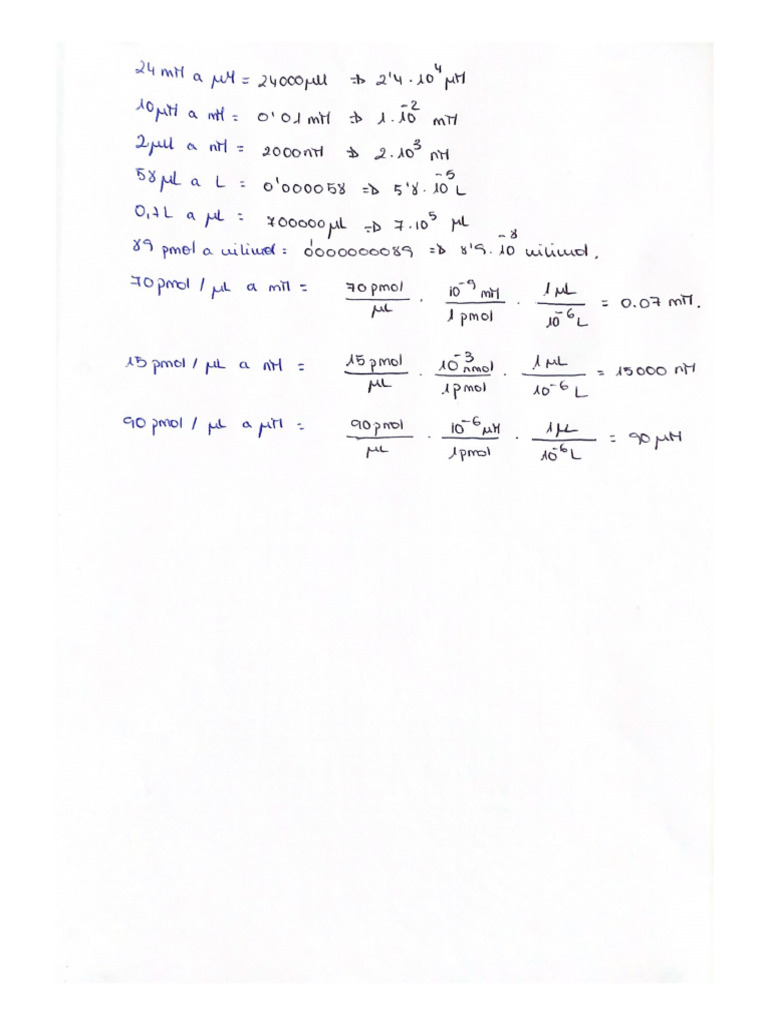 24 mM a µM = 24000µM => 2'4 · 10⁴ µM
10µM a mM = 0'01 mM => 1·10⁻² mM
2µM a nM = 2000nM => 2·10³ nM
58 µL a L = 0'000058 => 5'8·10⁻⁵ L
0,7L a µL = 700000µL => 7·10⁵ µL
89 pmol a milimol = 0'000000089 => 8'9·10⁻⁸ milimol.
70 pmol / µL a mM = 70 pmol/µL · 10⁻⁹ mM/1 pmol · 1 µL/10⁻⁶ L = 0.07 mM.
15 pmol / µL a nM = 15 pmol/µL · 10⁻³ nmol/1 pmol · 1 µL/10⁻⁶ L = 15000 nM
90 pmol / µL a µM = 90 pmol/µL · 10⁻⁶ µM/1 pmol · 1 µL/10⁻⁶ L = 90 µM